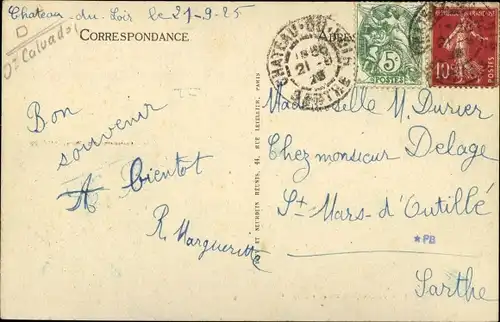 Chateau-du-Loir le 21-9-25
Dt Calvados
CORRESPONDANCE
CHATEAU-DU-LOIR
21-9
25
SARTHE
5c
POSTES
10c
POSTES
Bon
souvenir
A bientot
R. Marguerite
ET NEURDEIN RÉUNIS, 44, RUE LETELLIER, PARIS
Mademoiselle M. Durier
Chez monsieur Delage
St-Mars-d'Outillé
*PB
Sarthe